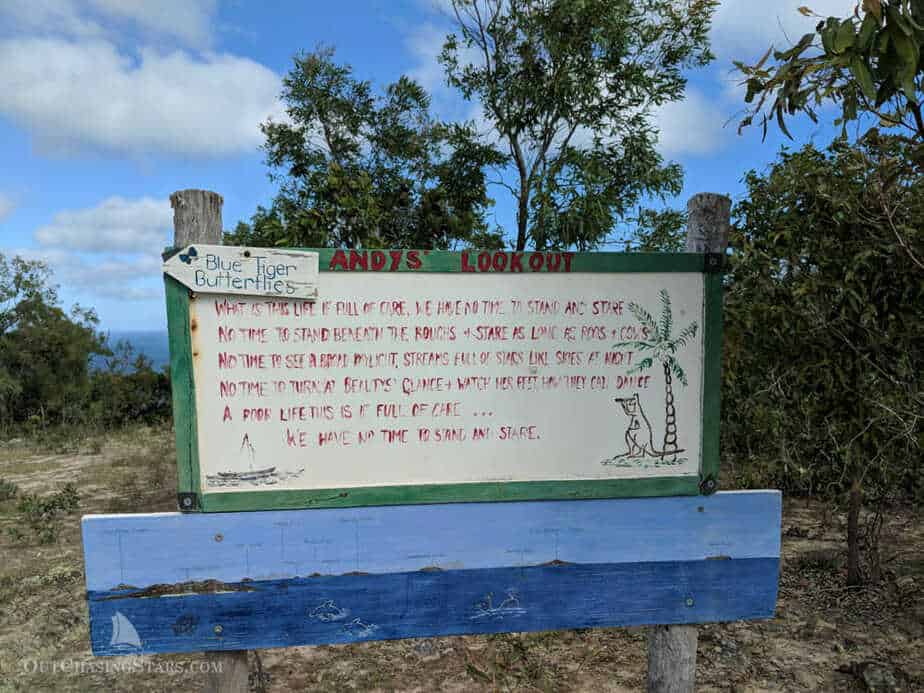 ANDYS' LOOKOUT
Blue Tiger
Butterflies
WHAT IS THIS LIFE IF FULL OF CARE, WE HAVE NO TIME TO STAND AND STARE
NO TIME TO STAND BENEATH THE BOUGHS + STARE AS LONG AS ROOS + COWS
NO TIME TO SEE A BROAD DAYLIGHT, STREAMS FULL OF STARS LIKE SKIES AT NIGHT
NO TIME TO TURN AT BEAUTYS' GLANCE + WATCH HER FEET, HOW THEY CAN DANCE
A POOR LIFE THIS IS IF FULL OF CARE ...
WE HAVE NO TIME TO STAND AND STARE.
OUTCHASINGSTARS.COM